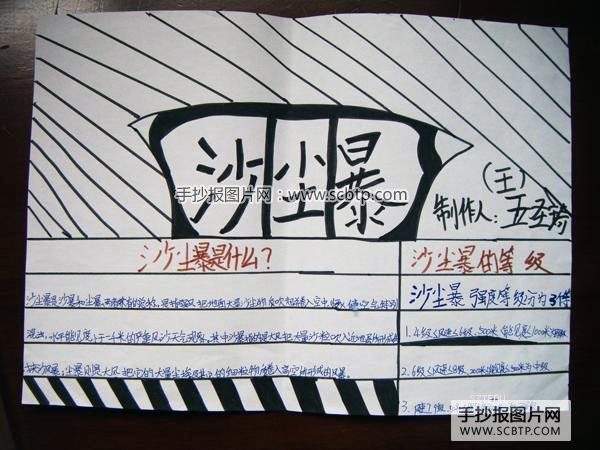 沙尘暴
手抄报图片网:www.scbtp.com
(王)
制作人:王圣琦
沙尘暴是什么?
沙尘暴是沙暴和尘暴两者兼有的总称,是指强风把地面大量沙尘物质吹起并卷入空中,使空气特别
混浊,水平能见度小于一千米的严重风沙天气现象。其中沙暴指的是大风把大量沙粒吹入近地层所形成的
沙风暴,尘暴则是大风把大量尘埃及其它细粒物质卷入高空所形成的风暴。
沙尘暴的等级
沙尘暴强度等级分为3个等
1.4级≤风速≤6级,500米≤能见度≤1000米
2.6级≤风速≤8级,200米≤能见度≤500米
3.
手抄报图片网
www.SCBTP.com